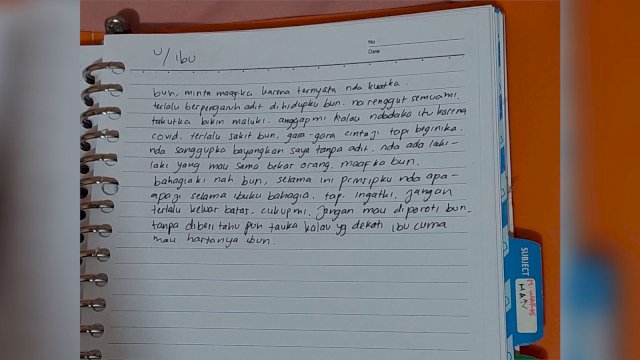 No
Date
U/ ibu
bun, minta maapka karena ternyata nda kuatka.
terlalu berpengaruh adit di hidupku bun. na renggut semuami.
takutka bikin maluki. anggapmi kalau nabodoka itu karena
covid. terlalu sakit bun, gara-gara cintaji tapi beginika.
nda sanggupka bayangkan saya tanpa adit. nda ada laki-
laki yang mau sama bekas orang. maapka bun.
bahagiaki nah bun, selama ini prinsipku nda apa-
apaji selama ibuku bahagia. tapi ingatki, jangan
terlalu keluar batas, cukupmi. jangan mau diporoti bun.
tanpa diberi tahu pun tauka kalau yg dekati ibu cuma
mau hartanya ibun.
SUBJECT
HAN